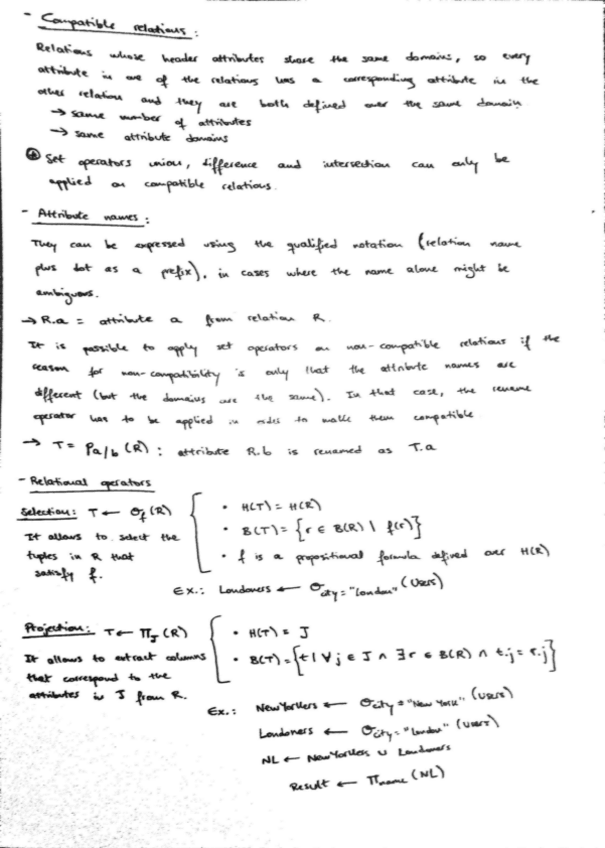 - Compatible relations:
Relations whose header attributes share the same domains, so every
attribute in one of the relations has a corresponding attribute in the
other relation and they are both defined over the same domain
→ same number of attributes
→ same attribute domains
⊕ Set operators union, difference and intersection can only be
applied on compatible relations.
- Attribute names:
They can be expressed using the qualified notation (relation name
plus dot as a prefix), in cases where the name alone might be
ambiguous.
→ R.a = attribute a from relation R.
It is possible to apply set operators on non-compatible relations if the
reason for non-compatibility is only that the attribute names are
different (but the domains are the same). In that case, the rename
operator has to be applied in order to make them compatible
→ T = ρa/b (R) : attribute R.b is renamed as T.a
- Relational operators
Selection: T ← σf (R)
It allows to select the
tuples in R that
satisfy f.
• H(T) = H(R)
• B(T) = {r ∈ B(R) | f(r)}
• f is a propositional formula defined over H(R)
Ex.: Londoners ← σcity="London" (Users)
Projection: T ← ΠJ (R)
It allows to extract columns
that correspond to the
attributes in J from R.
• H(T) = J
• B(T) = {t | ∀j ∈ J ∧ ∃r ∈ B(R) ∧ t.j = r.j}
Ex.: NewYorkers ← σcity="New York" (Users)
Londoners ← σcity="London" (Users)
NL ← NewYorkers ∪ Londoners
Result ← Πname (NL)